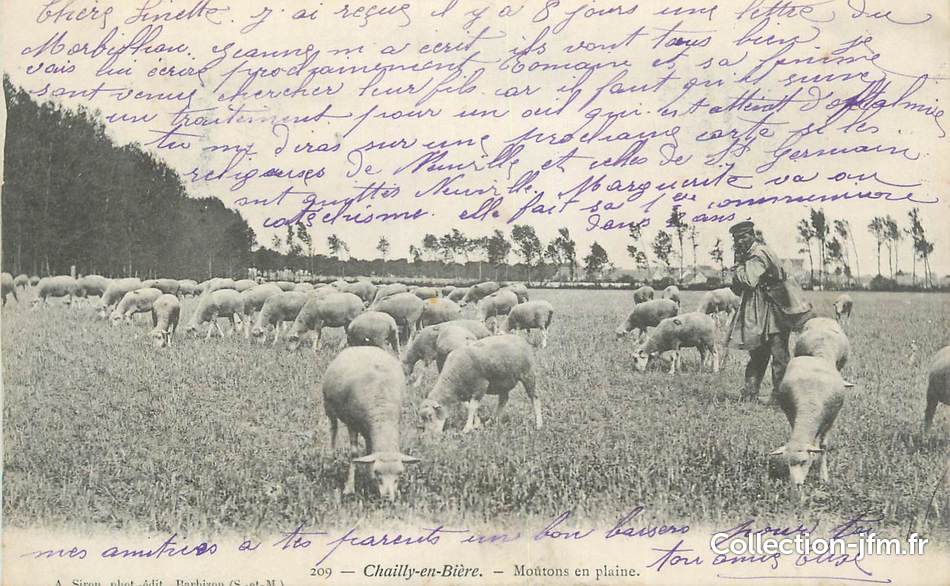 Chère Linette j'ai reçue il y a 8 jours une lettre du
Morbihan. Jeanne m a écrit ils vont tous bien. je
vais lui écrire prochainement Romaine et sa femme
sont venus chercher leur fils car il faut qu'il suive
un traitement pour un oeil qui est atteint d'ophtalmie
tu me diras sur une prochaine carte si les
religieuses de Neuville et celles de St Germain
ont quittés Neuville. Marguerite va au
catechisme. elle fait sa 1ère communion
dans 2 ans.
mes amitiés a tes parents un bon baisers pour toi
ton amie Elise
209 — Chailly-en-Bière. — Moutons en plaine.
A. Siron, phot.-édit., Barbizon (S.-et-M.)
Collection-jfm.fr